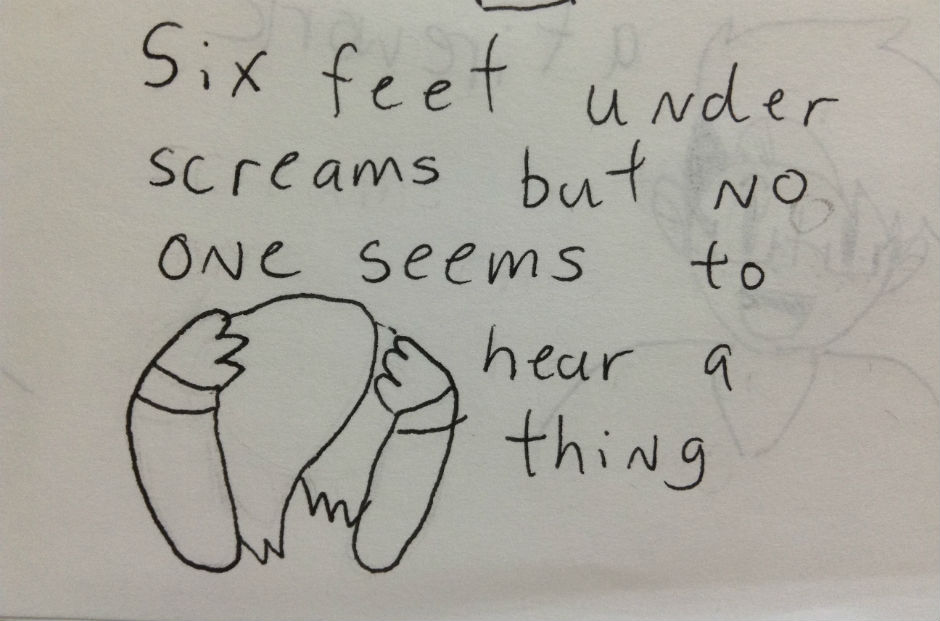 Six feet under
screams but no
one seems to
hear a
thing